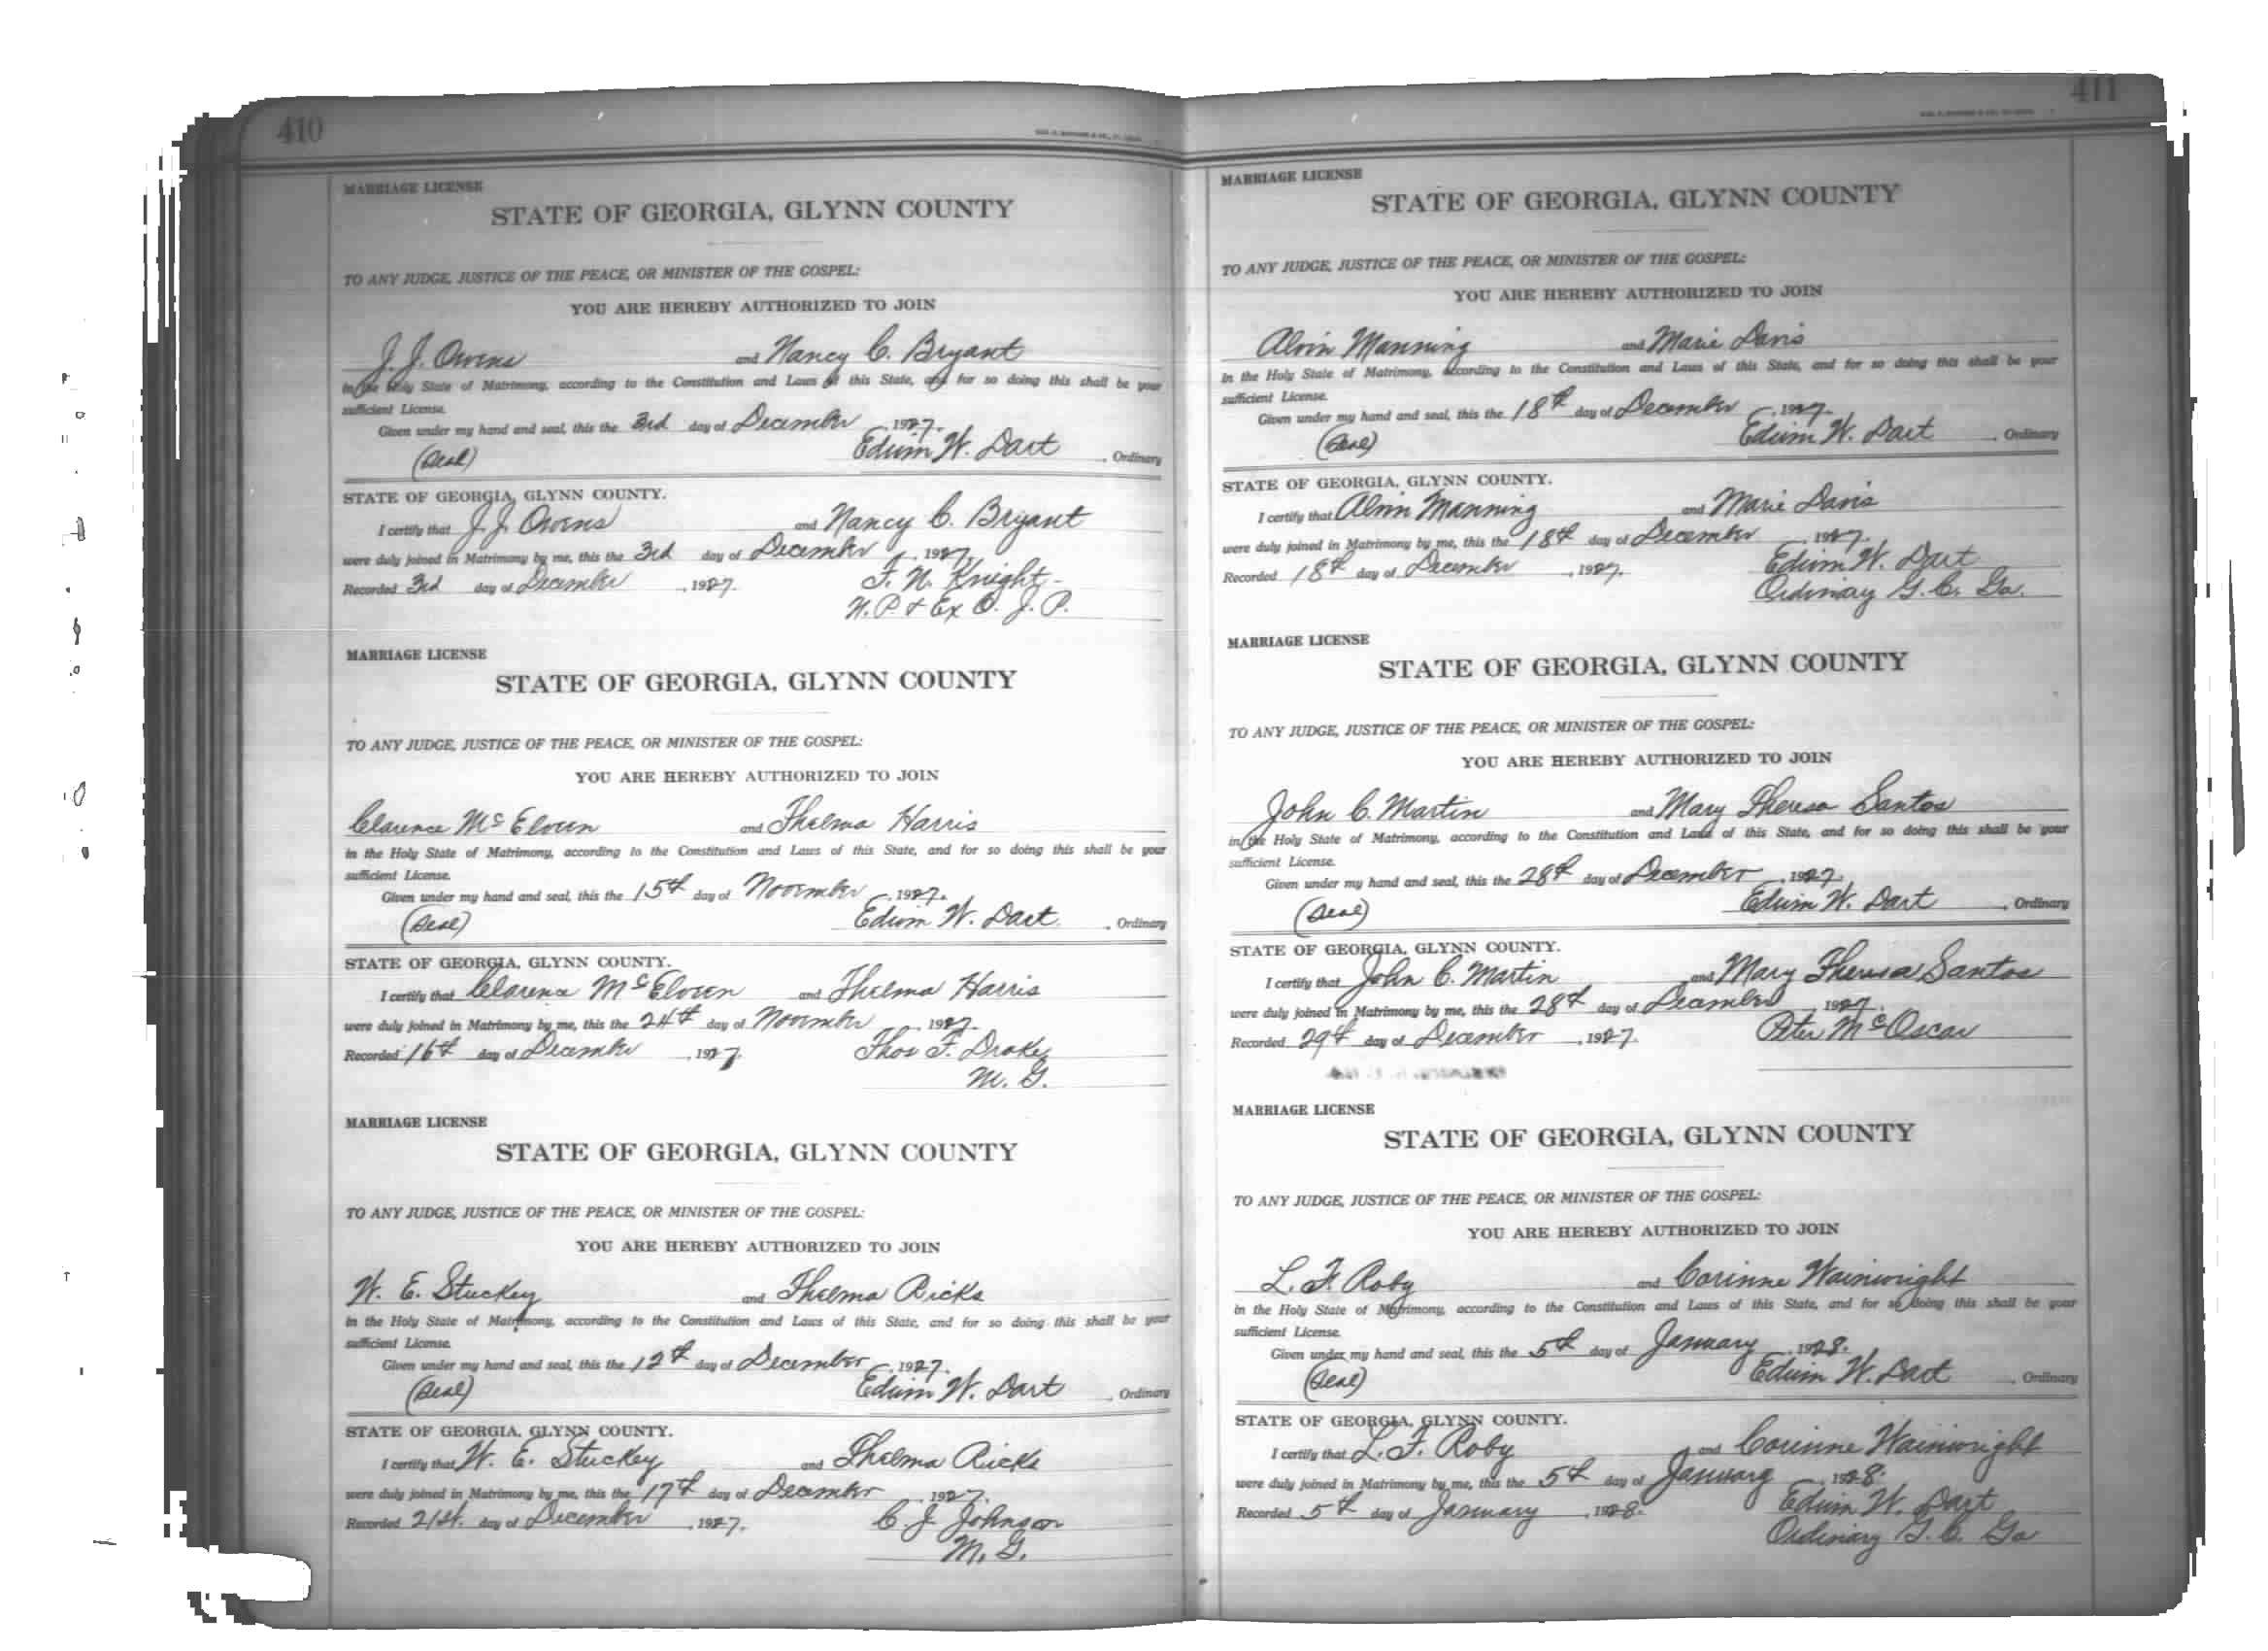 410
MARRIAGE LICENSE
STATE OF GEORGIA, GLYNN COUNTY
TO ANY JUDGE, JUSTICE OF THE PEACE, OR MINISTER OF THE GOSPEL:
YOU ARE HEREBY AUTHORIZED TO JOIN
J. J. Owens and Nancy C. Bryant
in the Holy State of Matrimony, according to the Constitution and Laws of this State, and for so doing this shall be your
sufficient License.
Given under my hand and seal, this the 3rd day of December, 1927.
(Seal) Edwin W. Dart, Ordinary
STATE OF GEORGIA, GLYNN COUNTY.
I certify that J. J. Owens and Nancy C. Bryant
were duly joined in Matrimony by me, this the 3rd day of December, 1927.
Recorded 3rd day of December, 1927. F. N. Knight
N. P. & Ex O. J. P.
MARRIAGE LICENSE
STATE OF GEORGIA, GLYNN COUNTY
TO ANY JUDGE, JUSTICE OF THE PEACE, OR MINISTER OF THE GOSPEL:
YOU ARE HEREBY AUTHORIZED TO JOIN
Clarence McElveen and Thelma Harris
in the Holy State of Matrimony, according to the Constitution and Laws of this State, and for so doing this shall be your
sufficient License.
Given under my hand and seal, this the 15th day of November, 1927.
(Seal) Edwin W. Dart, Ordinary
STATE OF GEORGIA, GLYNN COUNTY.
I certify that Clarence McElveen and Thelma Harris
were duly joined in Matrimony by me, this the 24th day of November, 1927.
Recorded 16th day of December, 1927. Thos F. Drake
M. G.
MARRIAGE LICENSE
STATE OF GEORGIA, GLYNN COUNTY
TO ANY JUDGE, JUSTICE OF THE PEACE, OR MINISTER OF THE GOSPEL:
YOU ARE HEREBY AUTHORIZED TO JOIN
W. E. Stuckey and Thelma Ricks
in the Holy State of Matrimony, according to the Constitution and Laws of this State, and for so doing this shall be your
sufficient License.
Given under my hand and seal, this the 12th day of December, 1927.
(Seal) Edwin W. Dart, Ordinary
STATE OF GEORGIA, GLYNN COUNTY.
I certify that W. E. Stuckey and Thelma Ricks
were duly joined in Matrimony by me, this the 17th day of December, 1927.
Recorded 21st. day of December, 1927. C. J. Johnson
M. G.
411
MARRIAGE LICENSE
STATE OF GEORGIA, GLYNN COUNTY
TO ANY JUDGE, JUSTICE OF THE PEACE, OR MINISTER OF THE GOSPEL:
YOU ARE HEREBY AUTHORIZED TO JOIN
Alvin Manning and Marie Davis
in the Holy State of Matrimony, according to the Constitution and Laws of this State, and for so doing this shall be your
sufficient License.
Given under my hand and seal, this the 18th day of December, 1927.
(Seal) Edwin W. Dart, Ordinary
STATE OF GEORGIA, GLYNN COUNTY.
I certify that Alvin Manning and Marie Davis
were duly joined in Matrimony by me, this the 18th day of December, 1927.
Recorded 18th day of December, 1927. Edwin W. Dart
Ordinary G. C. Ga.
MARRIAGE LICENSE
STATE OF GEORGIA, GLYNN COUNTY
TO ANY JUDGE, JUSTICE OF THE PEACE, OR MINISTER OF THE GOSPEL:
YOU ARE HEREBY AUTHORIZED TO JOIN
John C. Martin and Mary Theresa Santos
in the Holy State of Matrimony, according to the Constitution and Laws of this State, and for so doing this shall be your
sufficient License.
Given under my hand and seal, this the 28th day of December, 1927.
(Seal) Edwin W. Dart, Ordinary
STATE OF GEORGIA, GLYNN COUNTY.
I certify that John C. Martin and Mary Theresa Santos
were duly joined in Matrimony by me, this the 28th day of December, 1927.
Recorded 29th day of December, 1927. Peter McOscar
MARRIAGE LICENSE
STATE OF GEORGIA, GLYNN COUNTY
TO ANY JUDGE, JUSTICE OF THE PEACE, OR MINISTER OF THE GOSPEL:
YOU ARE HEREBY AUTHORIZED TO JOIN
L. F. Roby and Corinne Wainwright
in the Holy State of Matrimony, according to the Constitution and Laws of this State, and for so doing this shall be your
sufficient License.
Given under my hand and seal, this the 5th day of January, 1928.
(Seal) Edwin W. Dart, Ordinary
STATE OF GEORGIA, GLYNN COUNTY.
I certify that L. F. Roby and Corinne Wainwright
were duly joined in Matrimony by me, this the 5th day of January, 1928.
Recorded 5th day of January, 1928. Edwin W. Dart
Ordinary G. C. Ga